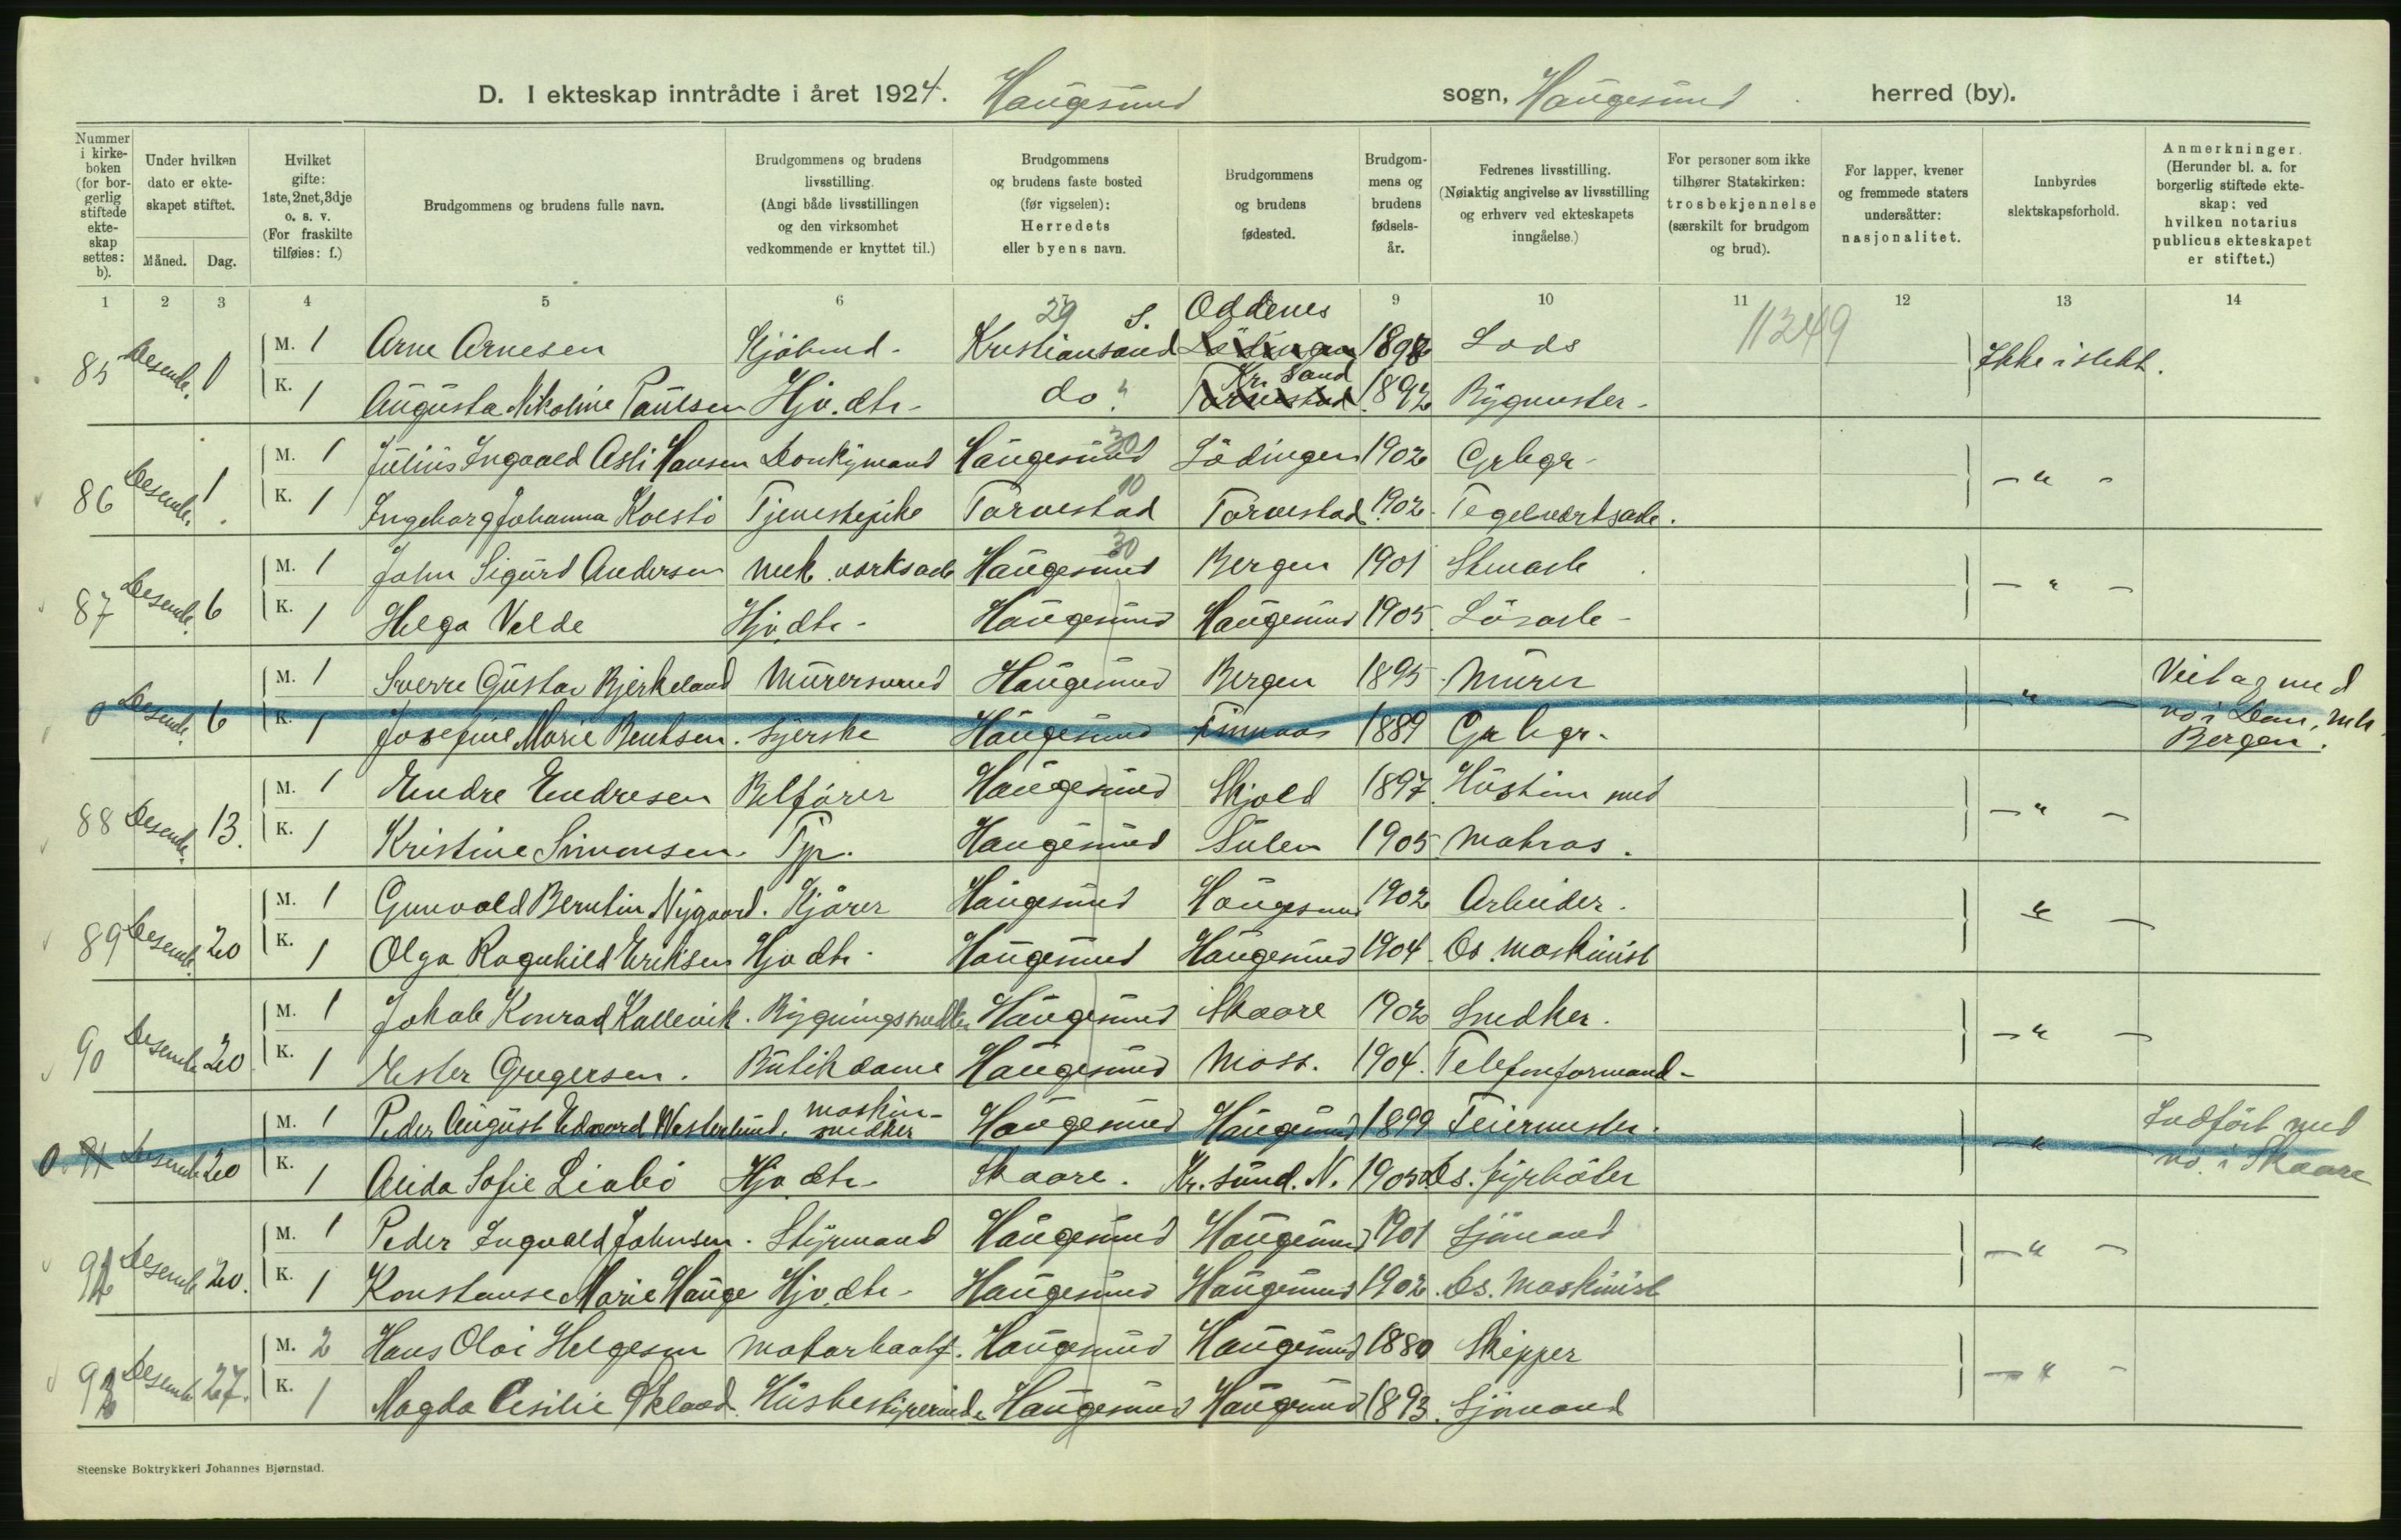 D. I ekteskap inntrådte i året 1924. Haugesund sogn, Haugesund herred (by).
Nummer i kirkeboken (for borgerlig stiftede ekteskap settes: b).
Under hvilken dato er ekteskapet stiftet.
Måned. Dag.
Hvilket gifte: 1ste, 2net, 3dje o. s. v. (For fraskilte tilføies: f.)
Brudgommens og brudens fulle navn.
Brudgommens og brudens livsstilling. (Angi både livsstillingen og den virksomhet vedkommende er knyttet til.)
Brudgommens og brudens faste bosted (før vigselen): Herredets eller byens navn.
Brudgommens og brudens fødested.
Brudgommens og brudens fødselsår.
Fedrenes livsstilling. (Nøiaktig angivelse av livsstilling og erhverv ved ekteskapets inngåelse.)
For personer som ikke tilhører Statskirken: trosbekjennelse (særskilt for brudgom og brud).
For lapper, kvener og fremmede staters undersåtter: nasjonalitet.
Innbyrdes slektskapsforhold.
Anmerkninger. (Herunder bl. a. for borgerlig stiftede ekteskap: ved hvilken notarius publicus ekteskapet er stiftet.)
1 2 3 4 5 6 7 9 10 11 12 13 14
29 Oddenes 11249
85 Desemb. 1 M. 1 Arne Arnesen Kjøbmd. Kristiansand S. 1898 Lods Ikke i slekt.
K. 1 Augusta Nikoline Paulsen Hjv. dtr. do " Kr. Sand 1892 Bygmester
30
86 Desemb. 1 M. 1 Julius Ingvald Asli Hansen Donkymand Haugesund Lödingen 1902 Grbgr. - " -
10
K. 1 Ingeborg Johanna Kolstö Tjenestepike Torvestad Torvestad 1902 Tegelverksarb.
30
87 Desemb. 6 M. 1 John Sigurd Andersen Mek. verksarb Haugesund Bergen 1901 Stenarb - " -
K. 1 Helga Velde Hjv. dtr. Haugesund Haugesund 1905 Lösarb
0 Desemb. 6 M. 1 Sverre Gustav Bjerkeland Murersvend Haugesund Bergen 1895 Murer - " - Viet og med
K. 1 Josefine Marie Bentsen. Syerske Haugesund Finnaas 1889 Grbgr. no i Dom. mh.
Bergen.
88 Desemb. 13. M. 1 Endre Endresen Bilförer Haugesund Skjold 1897 - " -
K. 1 Kristine Simonsen. Tjp. Haugesund Sulen 1905 Matros.
89 Desemb. 20 M. 1 Gunvald Berntin Nygaard. Kjörer Haugesund Haugesund 1902 Arbeider. " -
K. 1 Olga Ragnhild Eriksen Hjv dtr. Haugesund Haugesund 1904 Ds. Maskinist
90 Desemb. 20 M. 1 Jakob Konrad Kallevik. Bygningssnedker Haugesund Skaare 1902 Snedker. - " -
K. 1 Ester Gregersen. Butikdame Haugesund Moss. 1904. Telefonformand
0. 91 Desemb. 20 M. 1 Peder August Edvard Westerlund. maskinsnedker Haugesund Haugesund 1899 Feiermester. - " - Indfört med
K. 1 Alida Sofie Liabö Hjv. dtr. Skaare. Kr. sund. N. 1905 Ds. fyrböter no. i Skaare
Desemb. 20. M. 1 Peder Ingvald Johnsen. Styrmand Haugesund Haugesund 1901 Sjömand - " -
K. 1 Konstanse Marie Hauge Hjv. dtr. Haugesund Haugesund 1902. Ds. Maskinist
Desemb. 27. M. 2 Hans Olai Helgesen Haugesund Haugesund 1880 Skipper - " -
K. 1 Magda Cesilie Husbestyrerinde Haugesund Haugesund 1893. Sjömand
Steenske Boktrykkeri Johannes Bjørnstad.